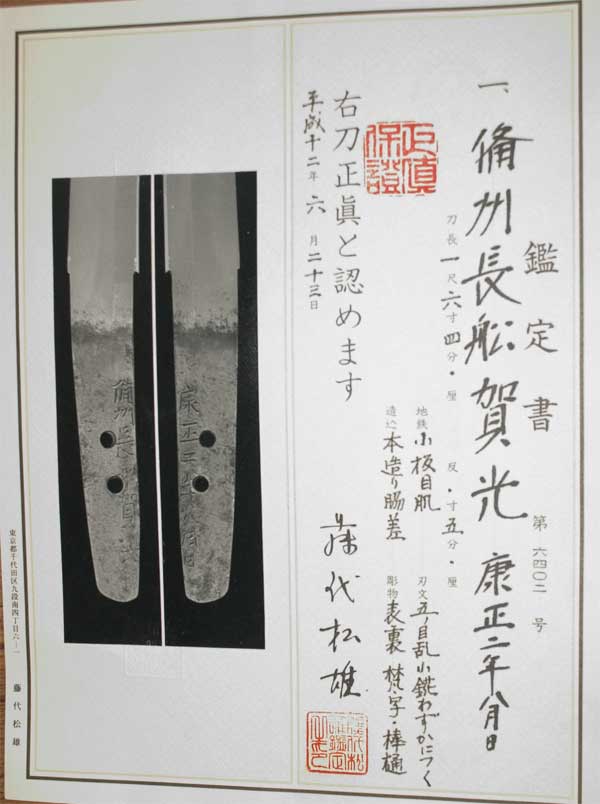 鑑定書
第六四〇二号
一、備州長船賀光 康正二年八月日
刀長一尺六寸四分・厘 反・寸五分・厘
地鉄 小板目肌 刃文 五ノ目乱小錵わずかにつく
造込 本造り脇差 彫物 表裏 梵字・棒樋
正真
保證
右刀正眞と認めます
平成十二年六月二十三日
藤代松雄
備州長船賀光
康正二年八月日
東京都千代田区九段南四丁目六-一 藤代松雄